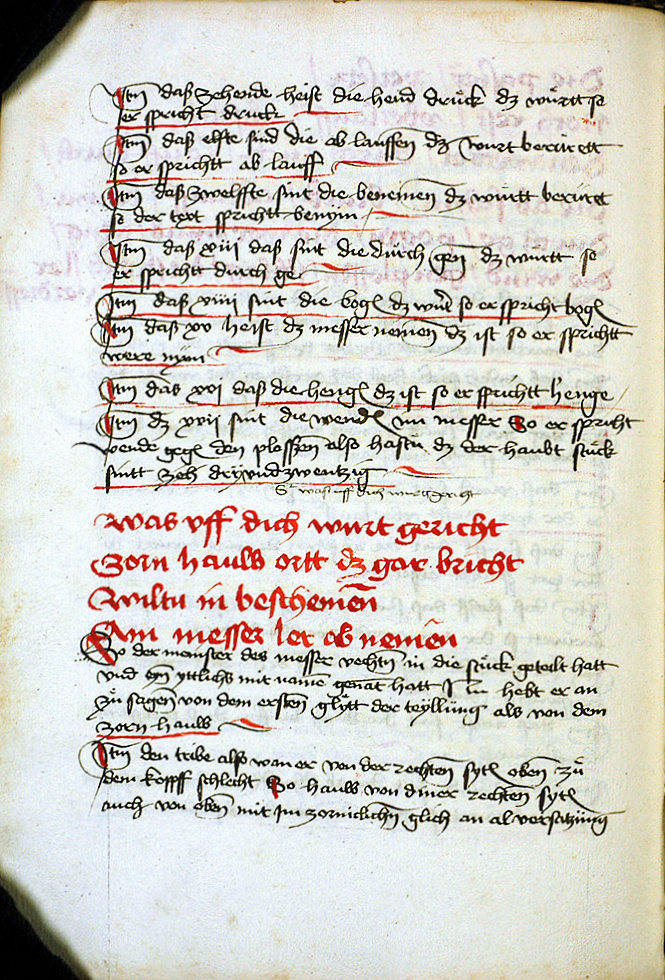 Itm daß zehende heist die hend druͦck dz wuͤrtt so
er spricht druck
Itm daß elfte sind die ab lauffen dz wurt beruͤrett
so er sprichtt ab lauff
Itm daß zwelffte sint die benemen dz wuͤrtt beruͤrt
so der text sprichtt benym
Itm daß xiii daß sint die durch gen dz wurtt so
er sprichtt durch ge
Itm daß xiiii sint die bogē dz so er spricht bogē
Itm daß xv heist dz messer nemen dz ist so er sprichtt
were
Itm das xvi daß die hengē dz ist so er sprichtt henge
Itm dz xvii sint die wendē im messer So er spricht
wende gegē den plossen also hastu dz der haubt stuͤck
sintt zeh dryvndzwentzig
was vff dich wurt gericht
was vff dich wurt gericht
zorn hauw ortt dz gar bricht
wiltu in beschemen̄
Am messer ler ab nemen
So der meinster des messer vechtn̄ in die stuͤck geteilt hatt
vnd eyn̄ yttlichs mit namē genāt hatt hebt er an
zuͦ sagen̄ von dem ersten̄ glytt der teyllung als von dem
zorn hauw
Itm den tribe also wan er von der rechten̄ sytē oben̄ zuͦ
dem kopff schlecht So hauw von diner rechten̄ sytē
auch von oben̄ mit Im zornicklichn̄ glich an al versatzung